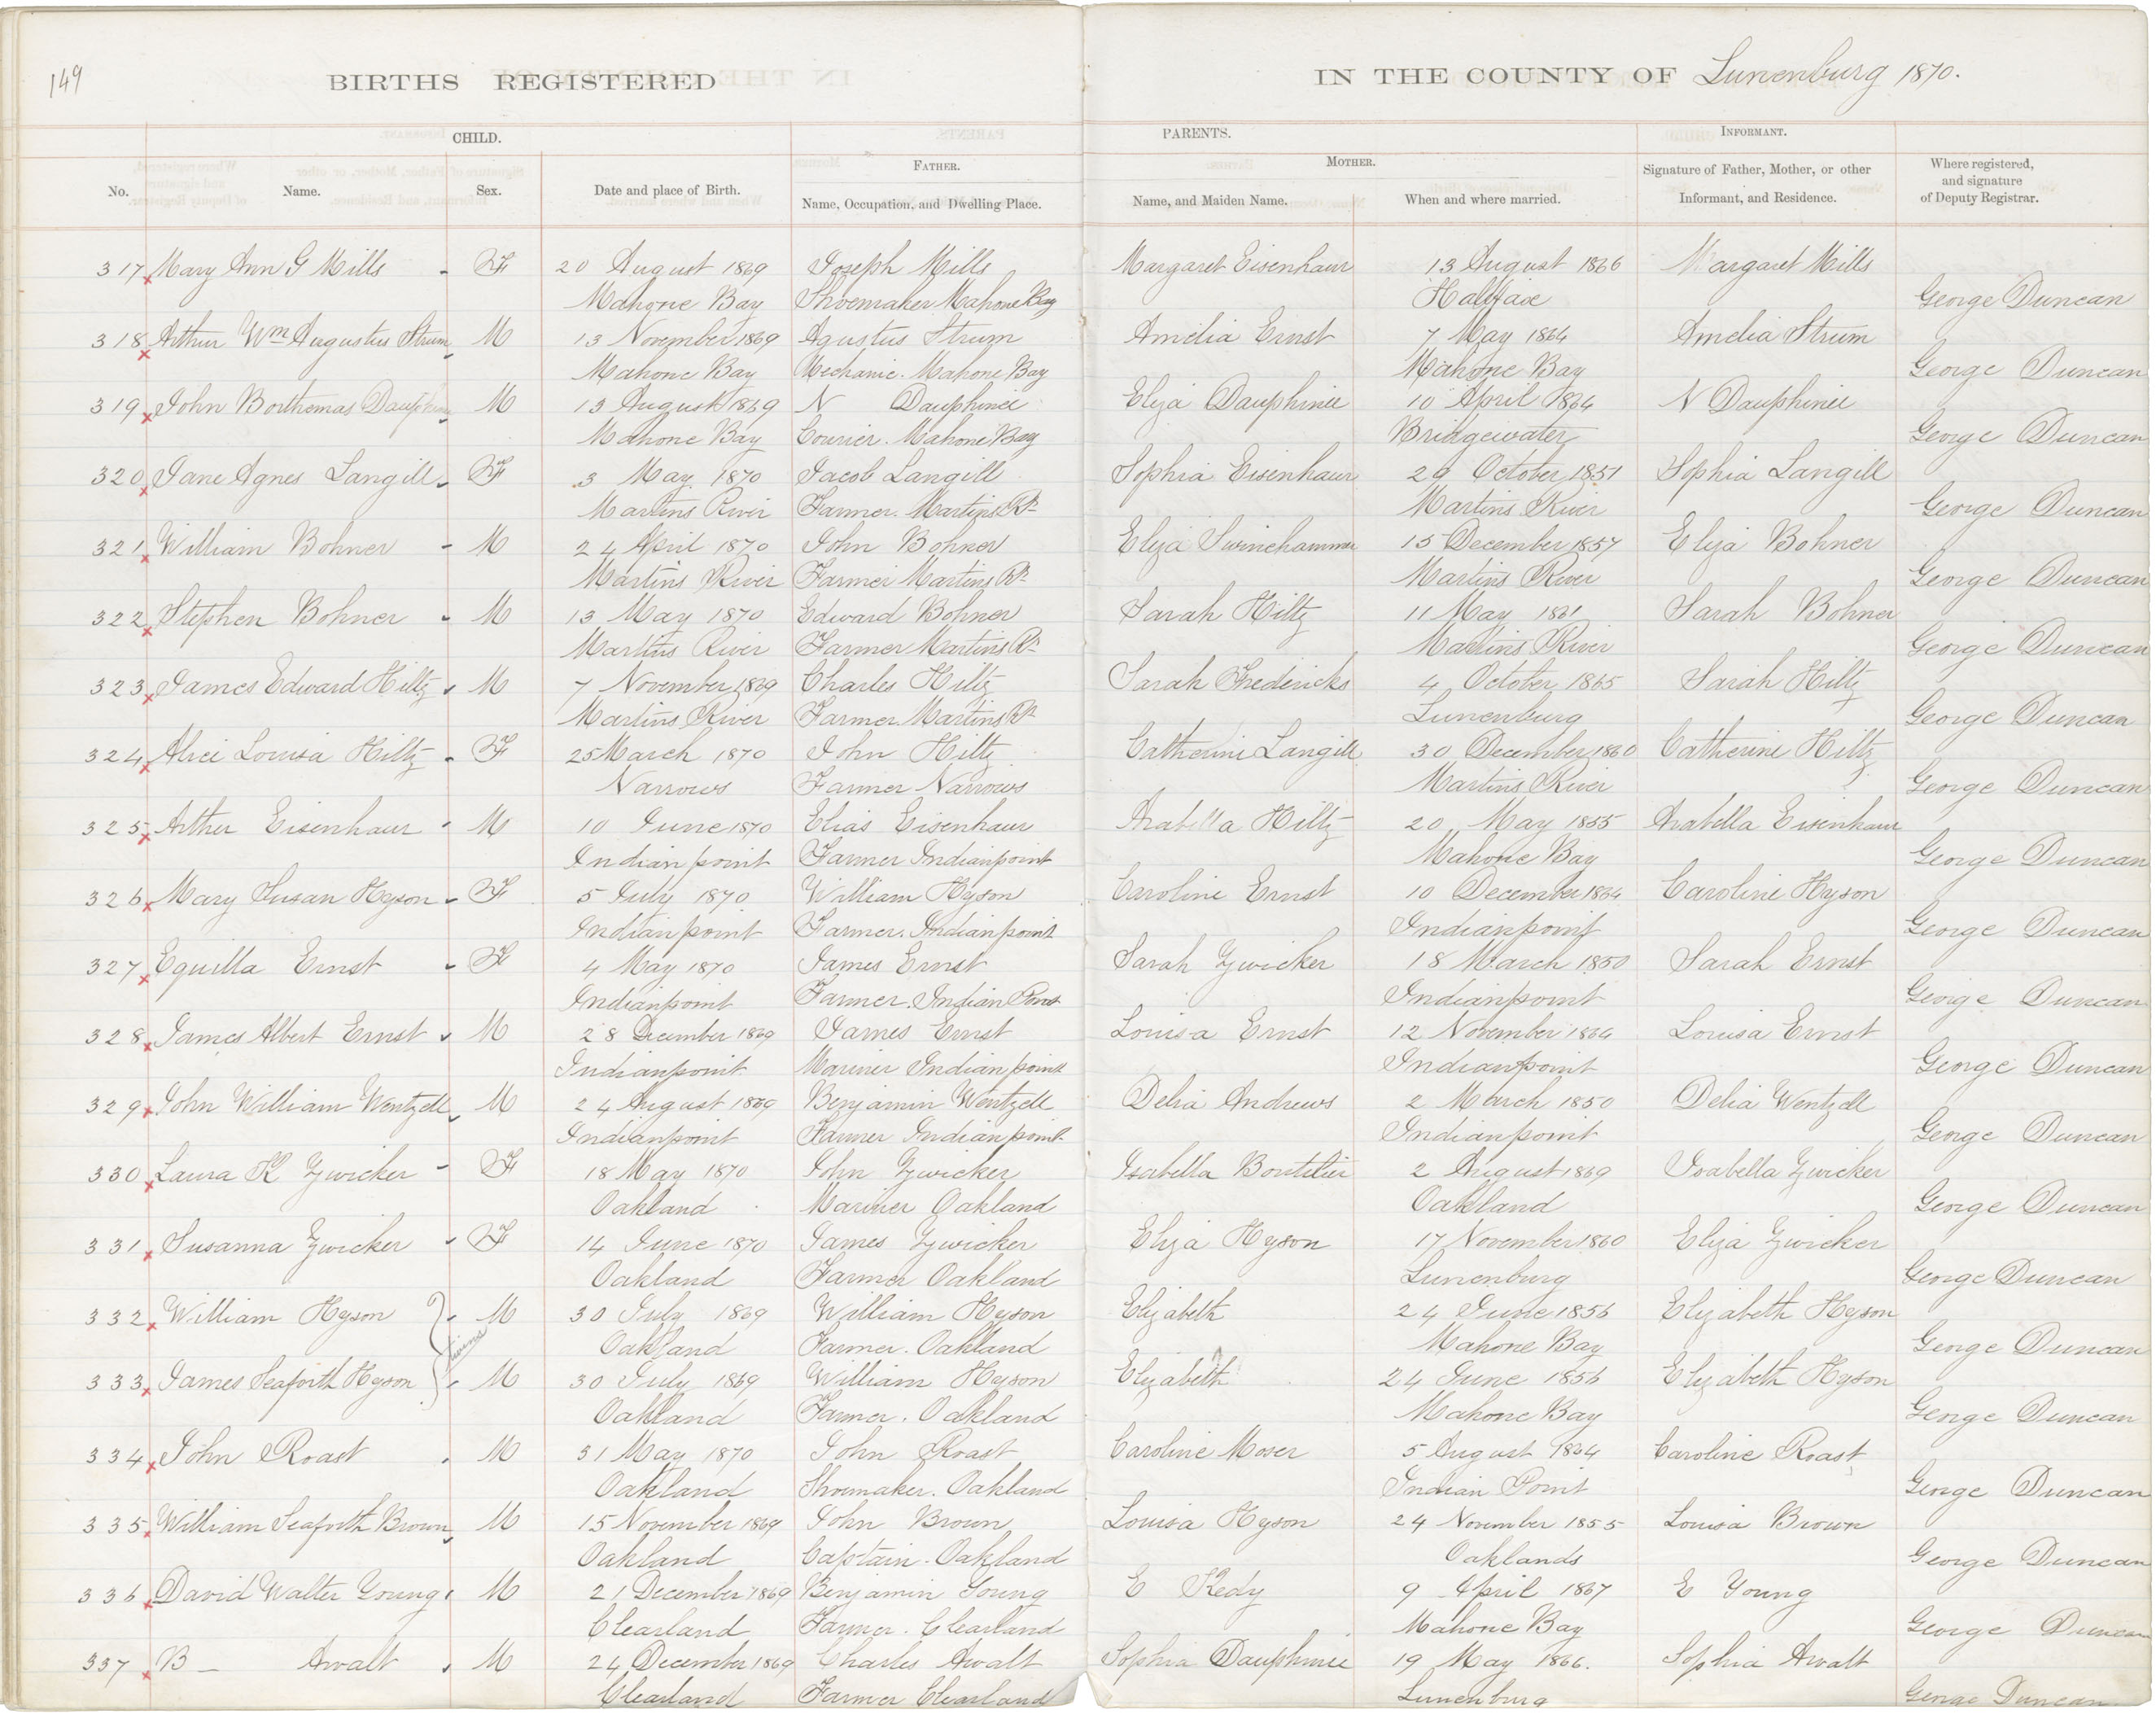 149
BIRTHS REGISTERED IN THE COUNTY OF Lunenburg 1870.
CHILD. PARENTS. INFORMANT.
FATHER. MOTHER.
No. Name. Sex. Date and place of Birth. Name, Occupation, and Dwelling Place. Name, and Maiden Name. When and where married. Signature of Father, Mother, or other Informant, and Residence. Where registered, and signature of Deputy Registrar.
317 Mary Ann G Mills F 20 August 1869 Joseph Mills Margaret Eisenhaur 13 August 1866 Margaret Mills
Mahone Bay Shoemaker Mahone Bay Halifax George Duncan
318 Arthur Wm Augustus Strum M 13 November 1869 Agustus Strum Amelia Ernst 7 May 1864 Amelia Strum
Mahone Bay Mechanic. Mahone Bay Mahone Bay George Duncan
319 John Dauphinee M 13 August 1869 N Dauphinee Eliza Dauphinee 10 April 1864 N Dauphinee
Mahone Bay Courier. Mahone Bay Bridgewater George Duncan
320 Jane Agnes Langill F 3 May 1870 Jacob Langill Sophia Eisenhaur October 1851 Sophia Langill
Martins River Farmer. Martins Rr Martins River George Duncan
321 William Bohner M 24 April 1870 John Bohner Eliza Swinehammer 15 December 1857 Eliza Bohner
Martins River Farmer Martins Rr Martins River George Duncan
322 Stephen Bohner M 13 May 1870 Edward Bohner Sarah Hiltz 11 May 1861 Sarah Bohner
Martins River Farmer Martins Rr Martins River George Duncan
323 James Edward Hiltz M 7 November 1869 Charles Hiltz Sarah Fredericks 4 October 1865 Sarah Hiltz
Martins River Farmer. Martins Rr Lunenburg George Duncan
324 Alice Louisa Hiltz F 25 March 1870 John Hiltz Catherine Langill 30 December 1860 Catherine Hiltz
Narrows Farmer Narrows Martins River George Duncan
325 Arther Eisenhaur M 10 June 1870 Elias Eisenhaur Arabella Hiltz 20 May 1855 Arabella Eisenhaur
Indian point Farmer Indianpoint Mahone Bay George Duncan
326 Mary Susan Hyson F 5 July 1870 William Hyson Caroline Ernst 10 December 1864 Caroline Hyson
Indian point Farmer. Indian point Indianpoint George Duncan
327 Equilla Ernst F 4 May 1870 James Ernst Sarah Zwicker 18 March 1850 Sarah Ernst
Indianpoint Farmer. Indian Point Indianpoint George Duncan
328 James Albert Ernst M 28 December 1869 James Ernst Louisa Ernst 12 November 1864 Louisa Ernst
Indianpoint Mariner Indian point Indianpoint George Duncan
329 John William Wentzell M 24 August 1869 Benjamin Wentzell Delia Andrews 2 March 1850 Delia Wentzell
Indianpoint Farmer Indian point Indianpoint George Duncan
330 Laura K Zwicker F 18 May 1870 John Zwicker Isabella Boutilier 2 August 1869 Isabella Zwicker
Oakland Mariner Oakland Oakland George Duncan
331 Susanna Zwicker F 14 June 1870 James Zwicker Eliza Hyson 17 November 1860 Eliza Zwicker
Oakland Farmer Oakland Lunenburg George Duncan
332 William Hyson twins M 30 July 1869 William Hyson Elizabeth 24 June 1856 Elizabeth Hyson
Oakland Farmer. Oakland Mahone Bay George Duncan
333 James Seaforth Hyson M 30 July 1869 William Hyson Elizabeth 24 June 1856 Elizabeth Hyson
Oakland Farmer. Oakland Mahone Bay George Duncan
334 John Roast M 31 May 1870 John Roast Caroline Moser 5 August 1864 Caroline Roast
Oakland Shoemaker. Oakland Indian Point George Duncan
335 William Seaforth Brown M 15 November 1869 John Brown Louisa Hyson 24 November 1855 Louisa Brown
Oakland Captain. Oakland Oaklands George Duncan
336 David Walter Young M 21 December 1869 Benjamin Young E Kedy 9 April 1867 E Young
Clearland Farmer. Clearland Mahone Bay George Duncan
337 B — Awalt M 24 December 1869 Charles Awalt Sophia Dauphinee 19 May 1866. Sophia Awalt
Clearland Farmer Clearland Lunenburg George Duncan